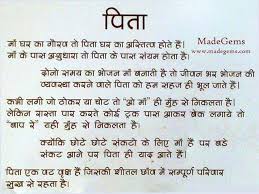 पिता
MadeGems
www.madegems.com
माँ घर का गौरव तो पिता घर का अस्तित्व होते हैं।
माँ के पास अश्रुधारा तो पिता के पास संयम होता है।
दोनो समय का भोजन माँ बनाती है तो जीवन भर भोजन की
व्यवस्था करने वाले पिता को हम सहज ही भूल जाते हैं।
कभी लगी जो ठोकर या चोट तो "ओ माँ" ही मुँह से निकलता है।
लेकिन रास्ता पार करते कोई ट्रक पास आकर ब्रेक लगाये तो
"बाप रे" यही मुँह से निकलता है।
क्योंकि छोटे छोटे संकटों के लिए माँ हैं पर बडे
संकट आने पर पिता ही याद आते हैं।
पिता एक वट वृक्ष हैं जिसकी शीतल छाँव में सम्पूर्ण परिवार
सुख से रहता है।